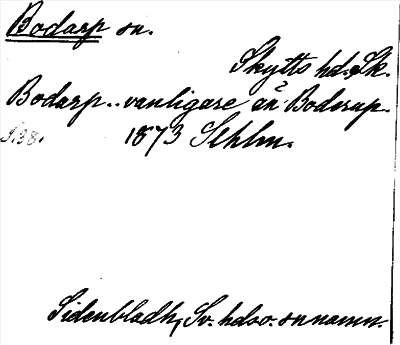 Bodarp sn.
Skytts hd. Sk.
Bodarp.. vanligare än Boderup.
S. 38. 1873 Sthlm.
Sidenbladh, Sv. hdso. sn namn.